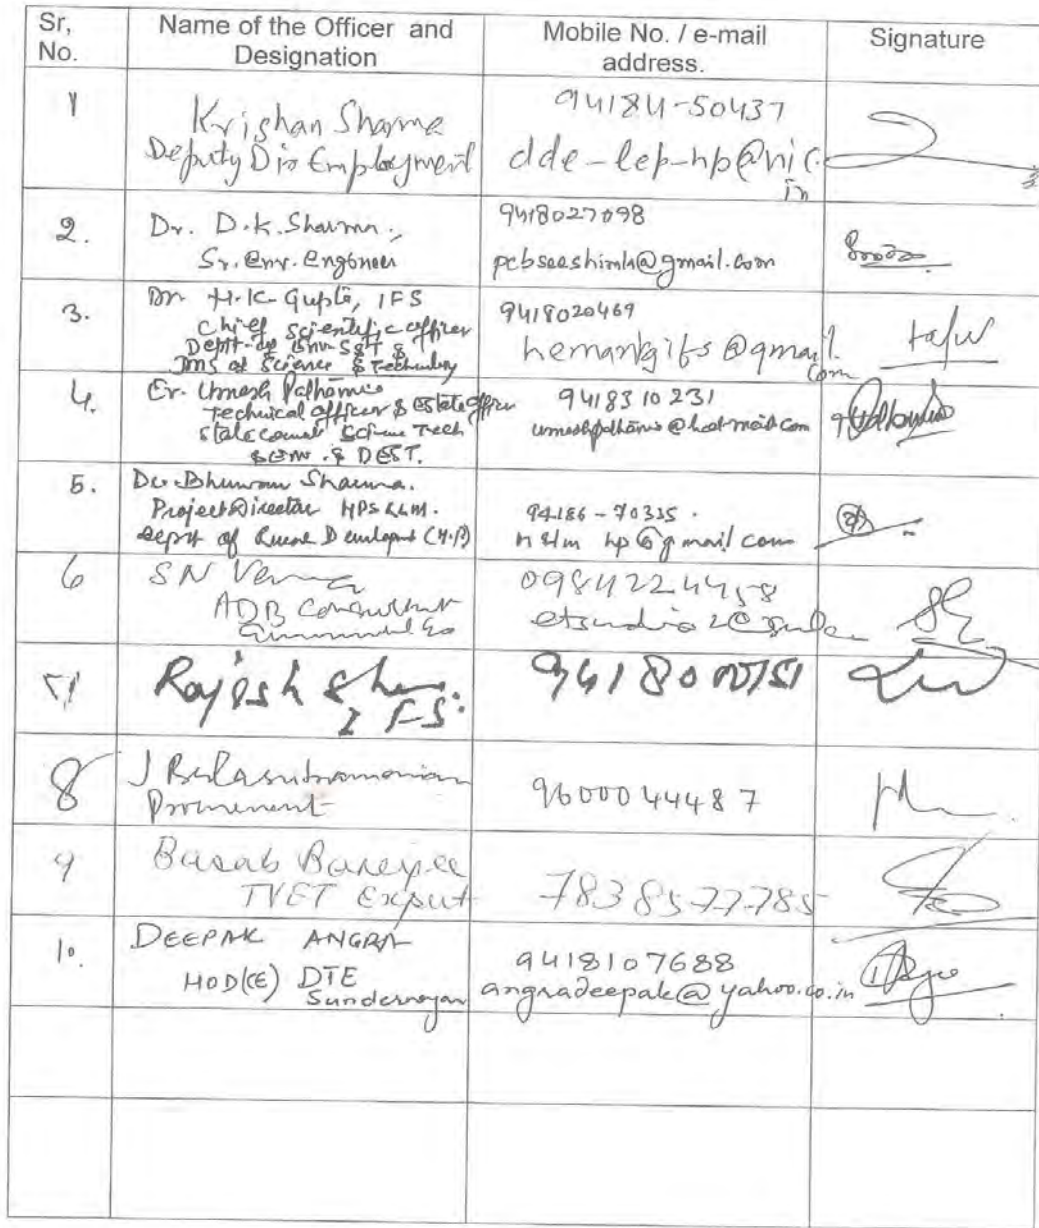 Sr, No.
Name of the Officer and Designation
Mobile No. / e-mail address.
Signature
1
Krishan Sharma
Deputy Dir Employment
94184-50437
dde-lep-hp@nic.
in
2.
Dr. D.K. Sharma.,
Sr. Env. Engineer
9418027098
pcbseeshimla@gmail.com
3.
Dr H.K. Gupta, IFS
Chief Scientific officer
Deptt. of Env. S&T &
of Science & Technology
9418020469
hemankgifs@gmail.
com
4.
Er. Umesh Pathania
Technical officer & Estate officer
State Council Science Tech
& Env. & DEST.
9418310231
umeshpathania@hotmail.com
5.
Bhuwan Sharma.
Project Director HPSRLM.
Deptt of Rural Development (H.P)
94186-70335.
hp@gmail com
6
SN Verma
ADB Consultant
09842224458
7
Rajesh
IFS.
8
J Balasubramanian
9600044487
9
Basab Banerjee
TVET Expert
7838577785
10.
DEEPAK ANGRA
HOD(CE) DTE
Sundernagar
9418107688
angradeepak@yahoo.co.in